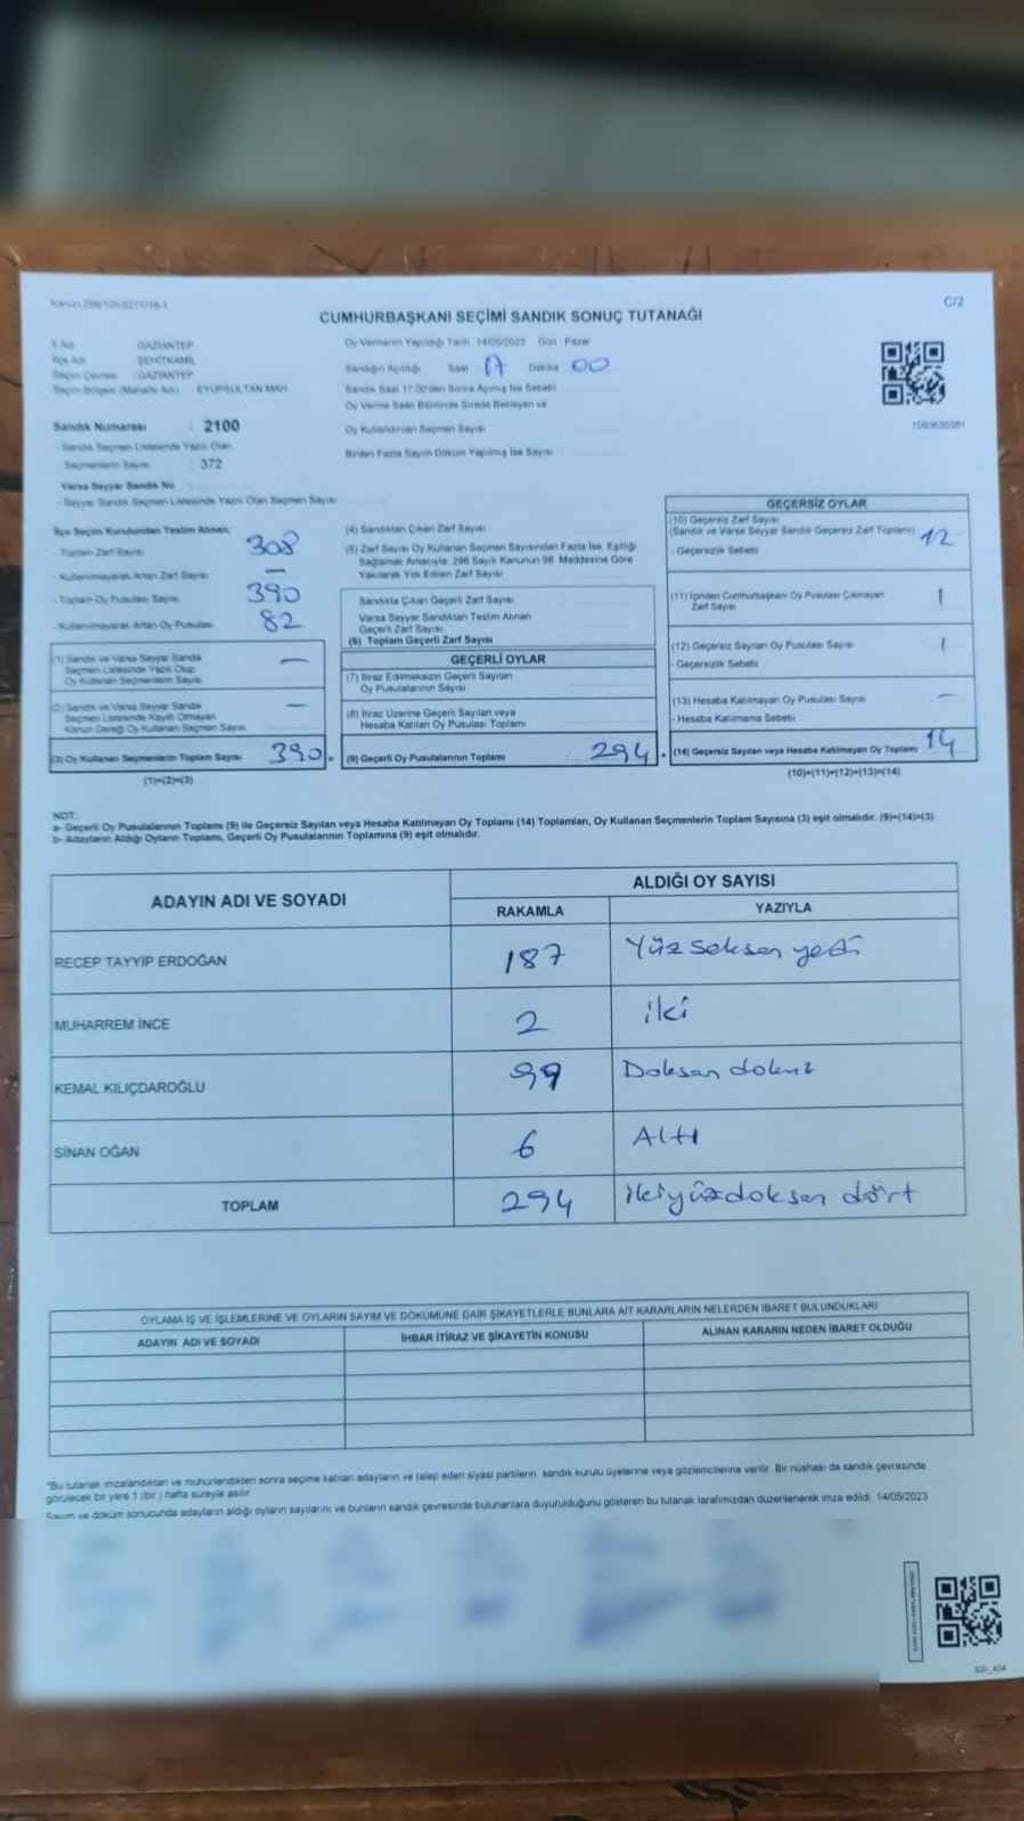 C/2
CUMHURBAŞKANI SEÇİMİ SANDIK SONUÇ TUTANAĞI
İl Adı GAZİANTEP
İlçe Adı ŞEHİTKAMİL
Seçim Çevresi GAZİANTEP
Seçim Bölgesi (Mahalle Adı) EYÜPSULTAN MAH
Oy Vermenin Yapıldığı Tarih 14/05/2023 Gün Pazar
Sandığın Açıldığı Saat 17 Dakika 00
Sandık Saat 17.00'den Sonra Açılmış İse Sebebi
Oy Verme Saati Bitiminde Sırada Bekleyen ve
Oy Kullandırılan Seçmen Sayısı
Birden Fazla Sayım Döküm Yapılmış İse Sayısı
Sandık Numarası : 2100
- Sandık Seçmen Listesinde Yazılı Olan
Seçmenlerin Sayısı : 372
Varsa Seyyar Sandık No
- Seyyar Sandık Seçmen Listesinde Yazılı Olan Seçmen Sayısı
İlçe Seçim Kurulundan Teslim Alınan;
- Toplam Zarf Sayısı 308
- Kullanılmayarak Artan Zarf Sayısı —
- Toplam Oy Pusulası Sayısı 390
- Kullanılmayarak Artan Oy Pusulası 82
(1) Sandık ve Varsa Seyyar Sandık
Seçmen Listesinde Yazılı Olup
Oy Kullanan Seçmenlerin Sayısı —
(2) Sandık ve Varsa Seyyar Sandık
Seçmen Listesinde Kayıtlı Olmayan
Kanun Gereği Oy Kullanan Seçmen Sayısı —
(3) Oy Kullanan Seçmenlerin Toplam Sayısı 390
(1)+(2)=(3)
(4) Sandıktan Çıkan Zarf Sayısı
(5) Zarf Sayısı Oy Kullanan Seçmen Sayısından Fazla İse, Eşitliği
Sağlamak Amacıyla; 298 Sayılı Kanunun 98. Maddesine Göre
Yakılarak Yok Edilen Zarf Sayısı
Sandıkta Çıkan Geçerli Zarf Sayısı
Varsa Seyyar Sandıktan Teslim Alınan
Geçerli Zarf Sayısı
(6) Toplam Geçerli Zarf Sayısı
GEÇERLİ OYLAR
(7) İtiraz Edilmeksizin Geçerli Sayılan
Oy Pusulalarının Sayısı
(8) İtiraz Üzerine Geçerli Sayılan veya
Hesaba Katılan Oy Pusulası Toplamı
(9) Geçerli Oy Pusulalarının Toplamı 294
GEÇERSİZ OYLAR
(10) Geçersiz Zarf Sayısı
(Sandık ve Varsa Seyyar Sandık Geçersiz Zarf Toplamı) 12
- Geçersizlik Sebebi
(11) İçinden Cumhurbaşkanı Oy Pusulası Çıkmayan
Zarf Sayısı 1
(12) Geçersiz Sayılan Oy Pusulası Sayısı 1
- Geçersizlik Sebebi
(13) Hesaba Katılmayan Oy Pusulası Sayısı —
- Hesaba Katılmama Sebebi
(14) Geçersiz Sayılan veya Hesaba Katılmayan Oy Toplamı 14
(10)+(11)+(12)+(13)=(14)
NOT:
a- Geçerli Oy Pusulalarının Toplamı (9) ile Geçersiz Sayılan veya Hesaba Katılmayan Oy Toplamı (14) Toplamları, Oy Kullanan Seçmenlerin Toplam Sayısına (3) eşit olmalıdır. (9)+(14)=(3)
b- Adayların Aldığı Oyların Toplamı, Geçerli Oy Pusulalarının Toplamına (9) eşit olmalıdır.
ADAYIN ADI VE SOYADI
ALDIĞI OY SAYISI
RAKAMLA YAZIYLA
RECEP TAYYİP ERDOĞAN 187 Yüz seksen yedi
MUHARREM İNCE 2 iki
KEMAL KILIÇDAROĞLU 99 Doksan dokuz
SİNAN OĞAN 6 Altı
TOPLAM 294 ikiyüzdoksan dört
OYLAMA İŞ VE İŞLEMLERİNE VE OYLARIN SAYIM VE DÖKÜMÜNE DAİR ŞİKAYETLERLE BUNLARA AİT KARARLARIN NELERDEN İBARET BULUNDUKLARI
ADAYIN ADI VE SOYADI İHBAR İTİRAZ VE ŞİKAYETİN KONUSU ALINAN KARARIN NEDEN İBARET OLDUĞU
*Bu tutanak imzalandıktan ve mühürlendikten sonra seçime katılan adayların ve talep eden siyasi partilerin, sandık kurulu üyelerine veya gözlemcilerine verilir. Bir nüshası da sandık çevresinde
görülecek bir yere 1 (bir) hafta süreyle asılır.
Sayım ve döküm sonucunda adayların aldığı oyların sayılarını ve bunların sandık çevresinde bulunanlara duyurulduğunu gösteren bu tutanak tarafımızdan düzenlenerek imza edildi. 14/05/2023